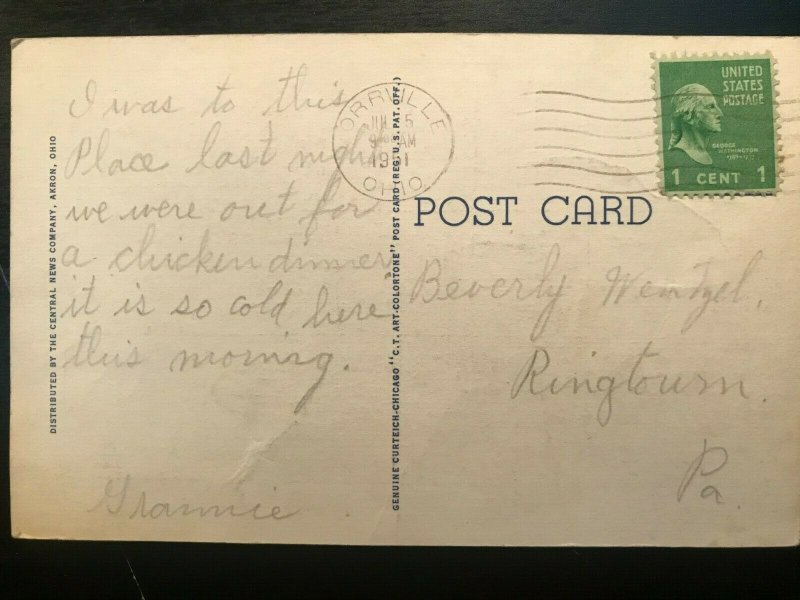 I was to this
Place last night
we were out for
a chicken dinner
it is so cold here
this morning.
Grannie
DISTRIBUTED BY THE CENTRAL NEWS COMPANY, AKRON, OHIO
GENUINE CURTEICH-CHICAGO "C.T. ART-COLORTONE" POST CARD (REG. U.S. PAT. OFF.)
ORRVILLE
5
9 AM
OHIO
UNITED
STATES
POSTAGE
GEORGE
WASHINGTON
1 CENT 1
POST CARD
Beverly Wentzel.
Ringtown.
Pa.